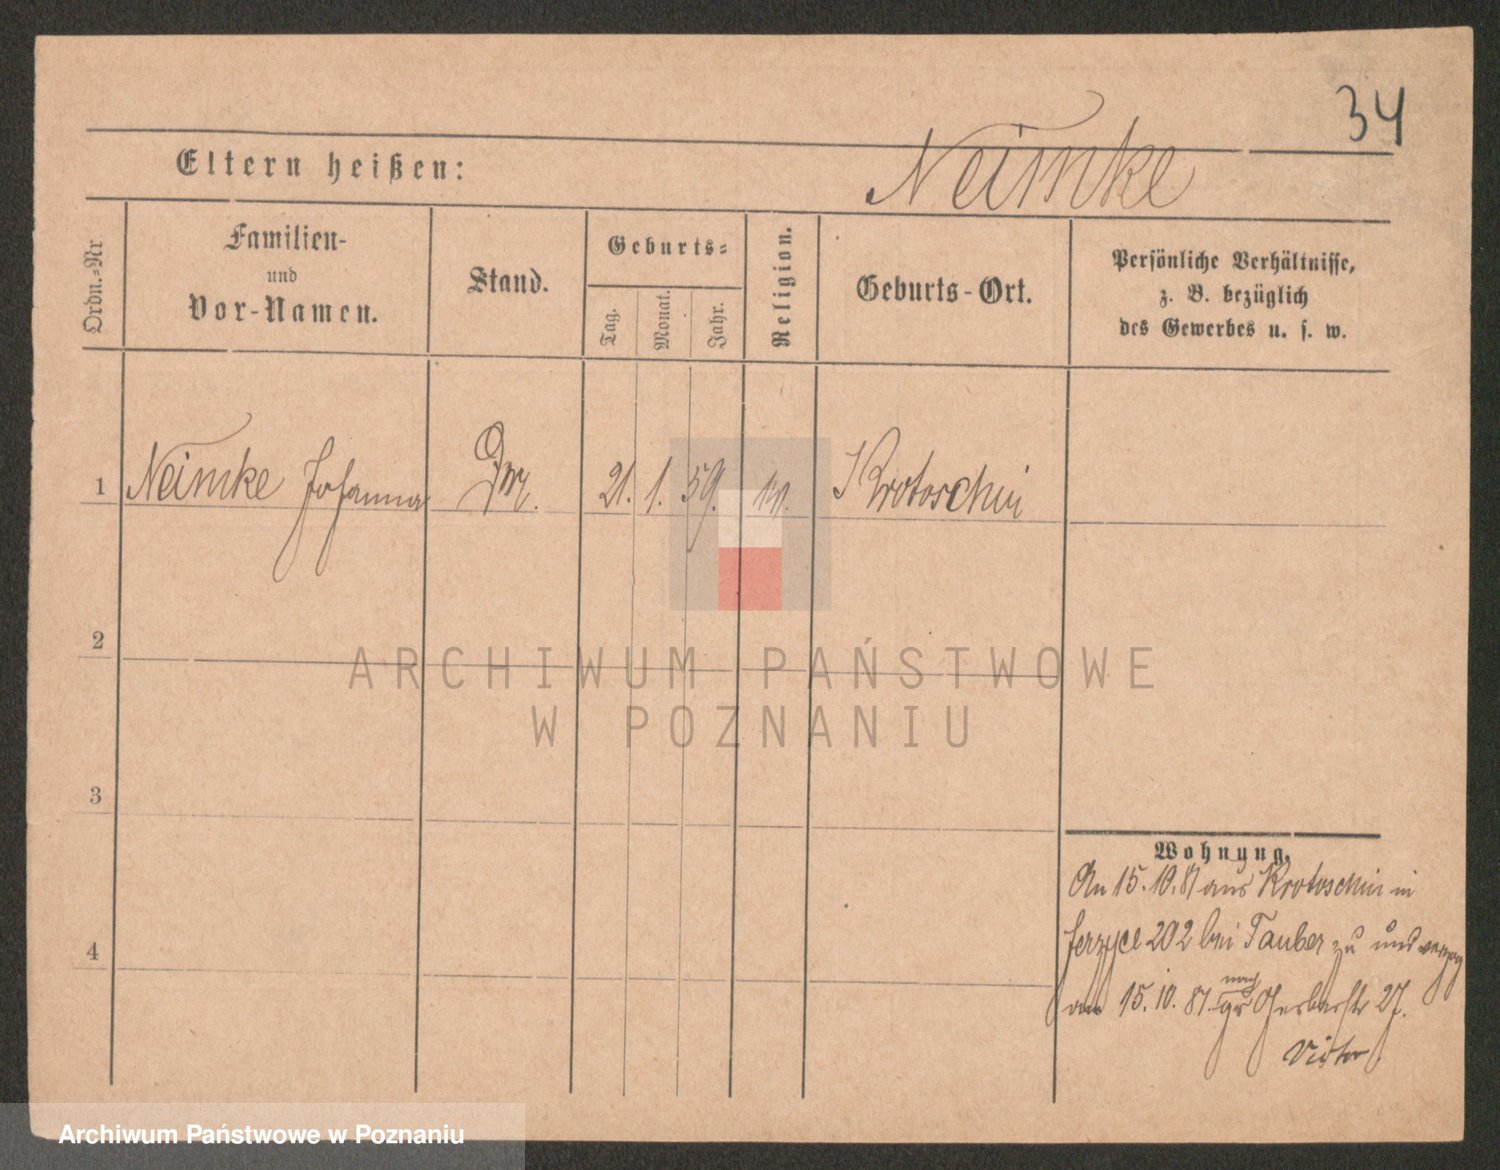 34
Eltern heißen:
Neimke
Ordn.-Nr
Familien-
und
Vor-Namen.
Stand.
Geburts-
Tag.
Monat.
Jahr.
Religion.
Geburts-Ort.
Persönliche Verhältnisse,
z. B. bezüglich
des Gewerbes u. s. w.
1 Neimke Johanna 21. 1. 59. Krotoschin
2
3
4
ARCHIWUM PAŃSTWOWE
W POZNANIU
Wohnung.
An 15.10.81 aus Krotoschin in
Jerzyce 202 bei Tauber zu und verzog
am 15.10.81. nach gr Gerberstr 27.
Archiwum Państwowe w Poznaniu